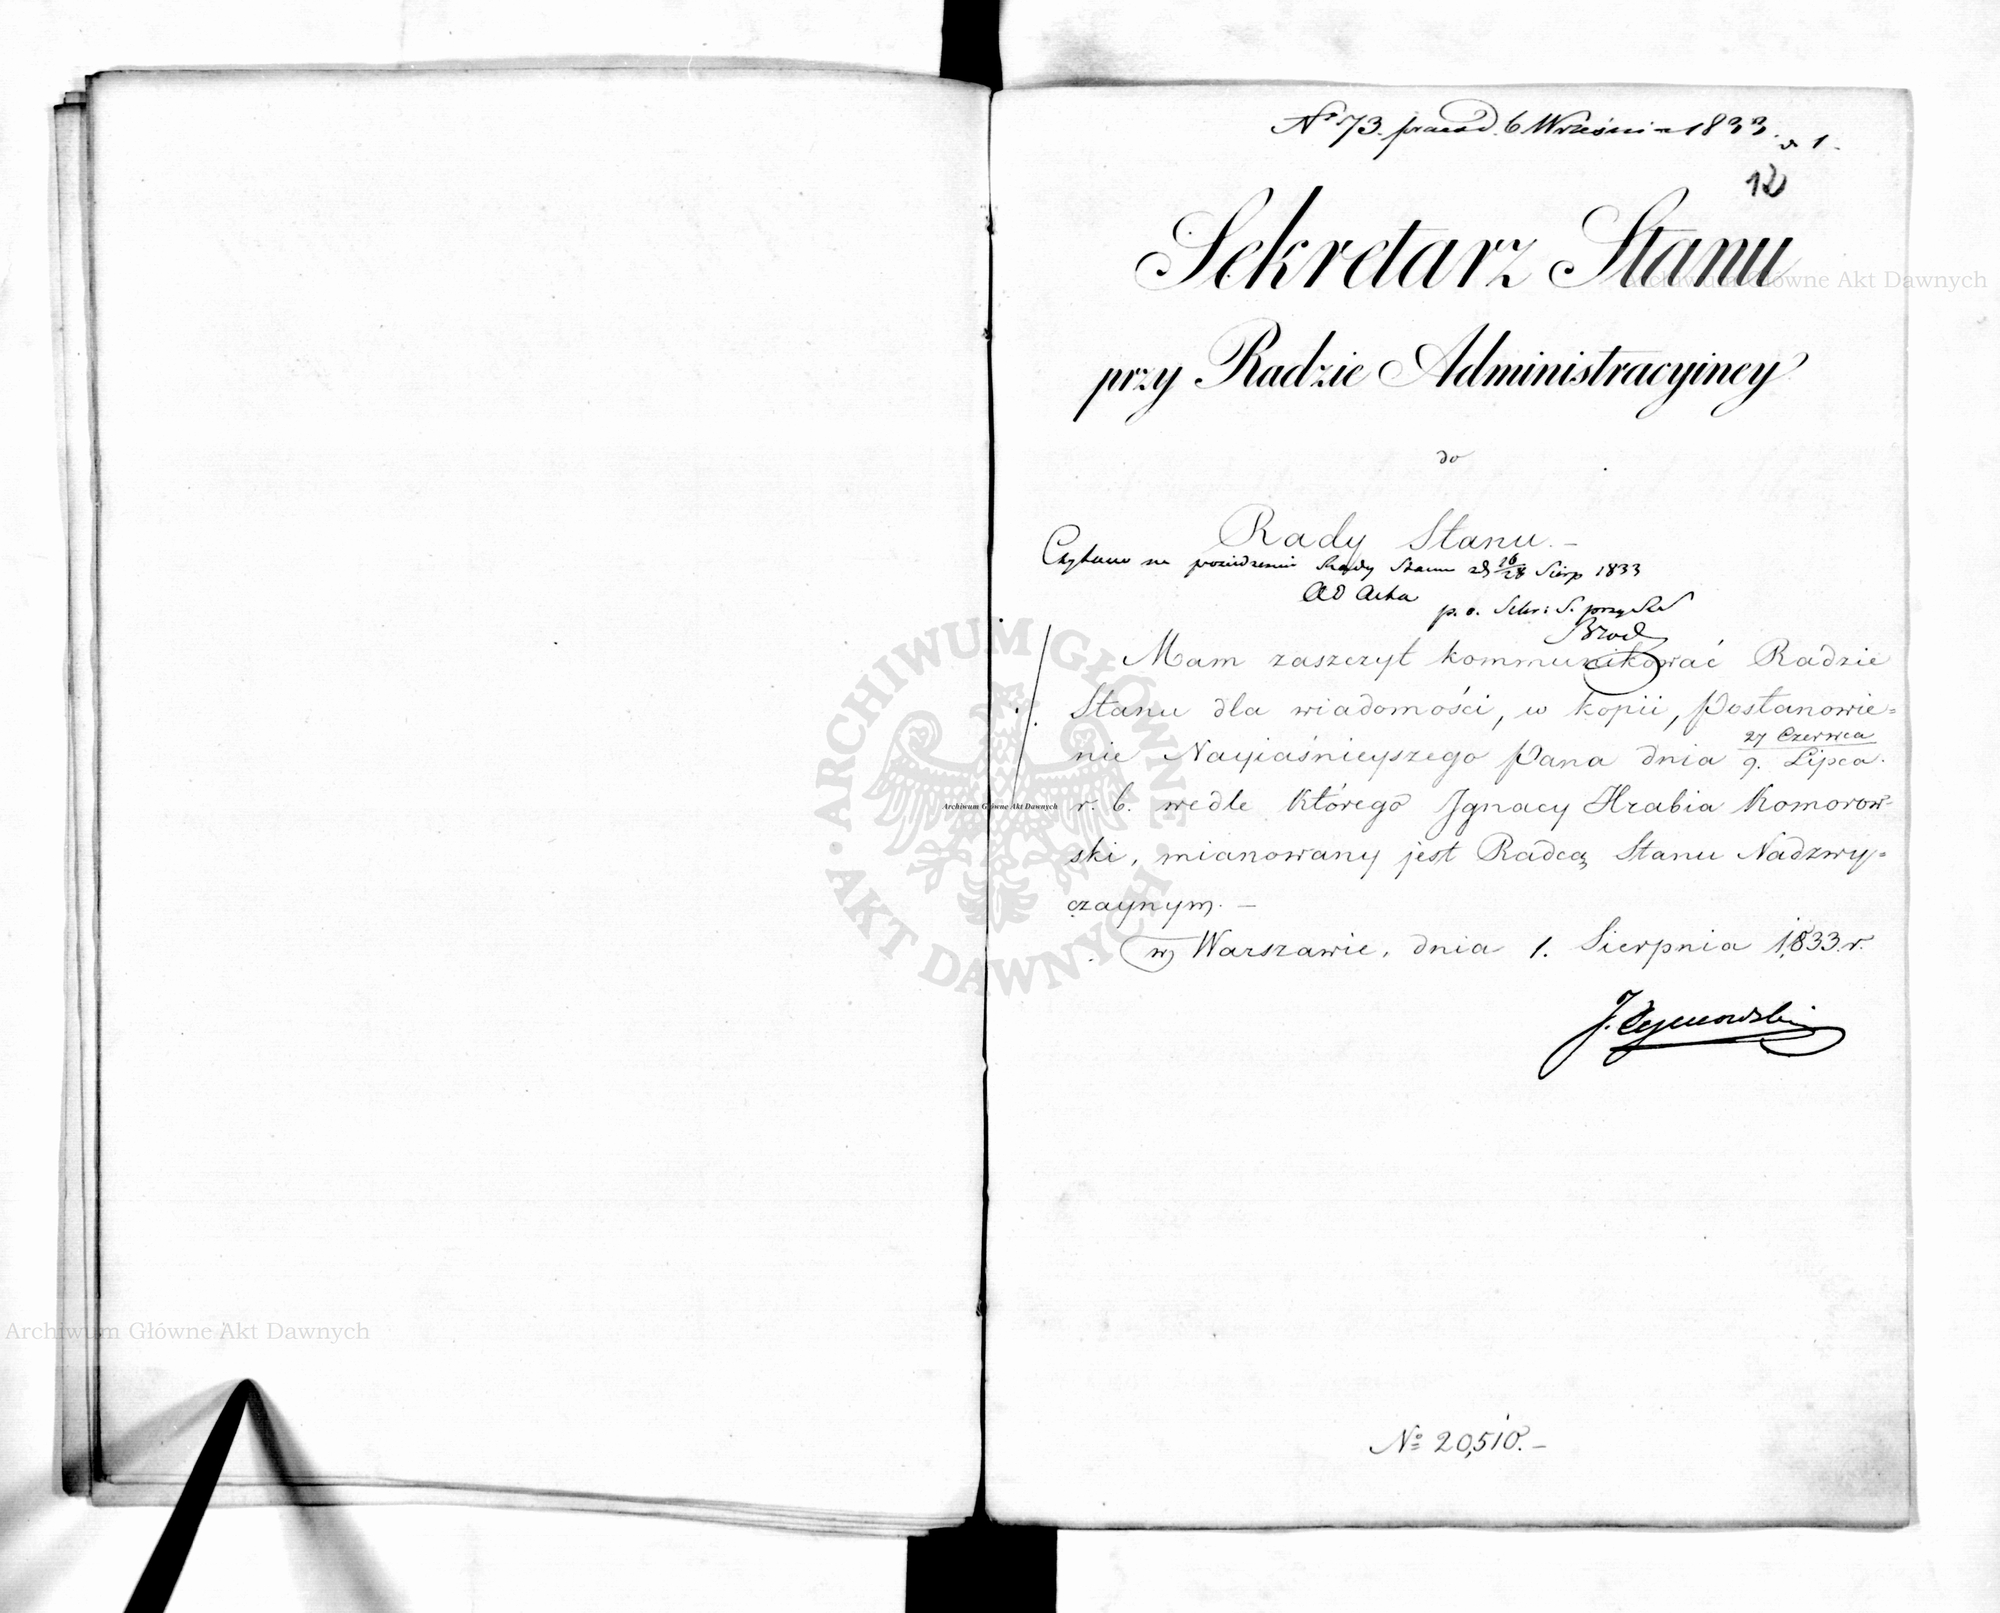 Nº 73. praesd. 6 Września 1833. 1.
12
Sekretarz Stanu
przy Radzie Administracyiney
do
Rady Stanu. –
Czytano na posiedzeniu Rady Stanu d. 16/28 Sierp 1833
Ad Acta
p. o. Sekr: S. przy
Mam zaszczyt kommunikować Radzie
Stanu dla wiadomości, w kopii, Postanowie=
nie Nayiaśnieyszego Pana dnia 27 Czerwca / 9. Lipca.
r. b. wedle którego Ignacy Hrabia Komorow-
ski, mianowany jest Radcą Stanu Nadzwy=
czaynym. –
w Warszawie, dnia 1. Sierpnia 1833. r.
J. Tymowski
Nº 20,510. –
ARCHIWUM GŁÓWNE AKT DAWNYCH
Archiwum Główne Akt Dawnych
Archiwum Główne Akt Dawnych
Archiwum Główne Akt Dawnych